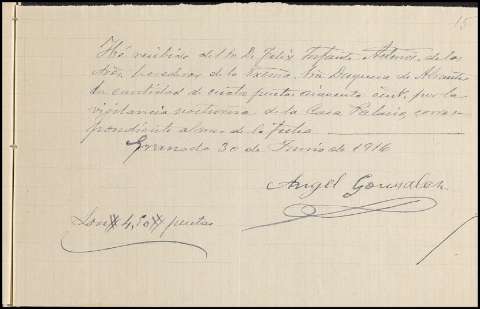 15
He recibido del Sr. D. Felix Infante, Admor. de los
Sres. herederos de la Excma. Sra. Duquesa de Abrantes
la cantidad de cuatro pesetas cincuenta cents. por la
vigilancia nocturna de la Casa Palacio, corres-
pondiente al mes de la fecha
Granada 30 de Junio de 1916
Angel Gonzalez
Son # 4,50 # pesetas